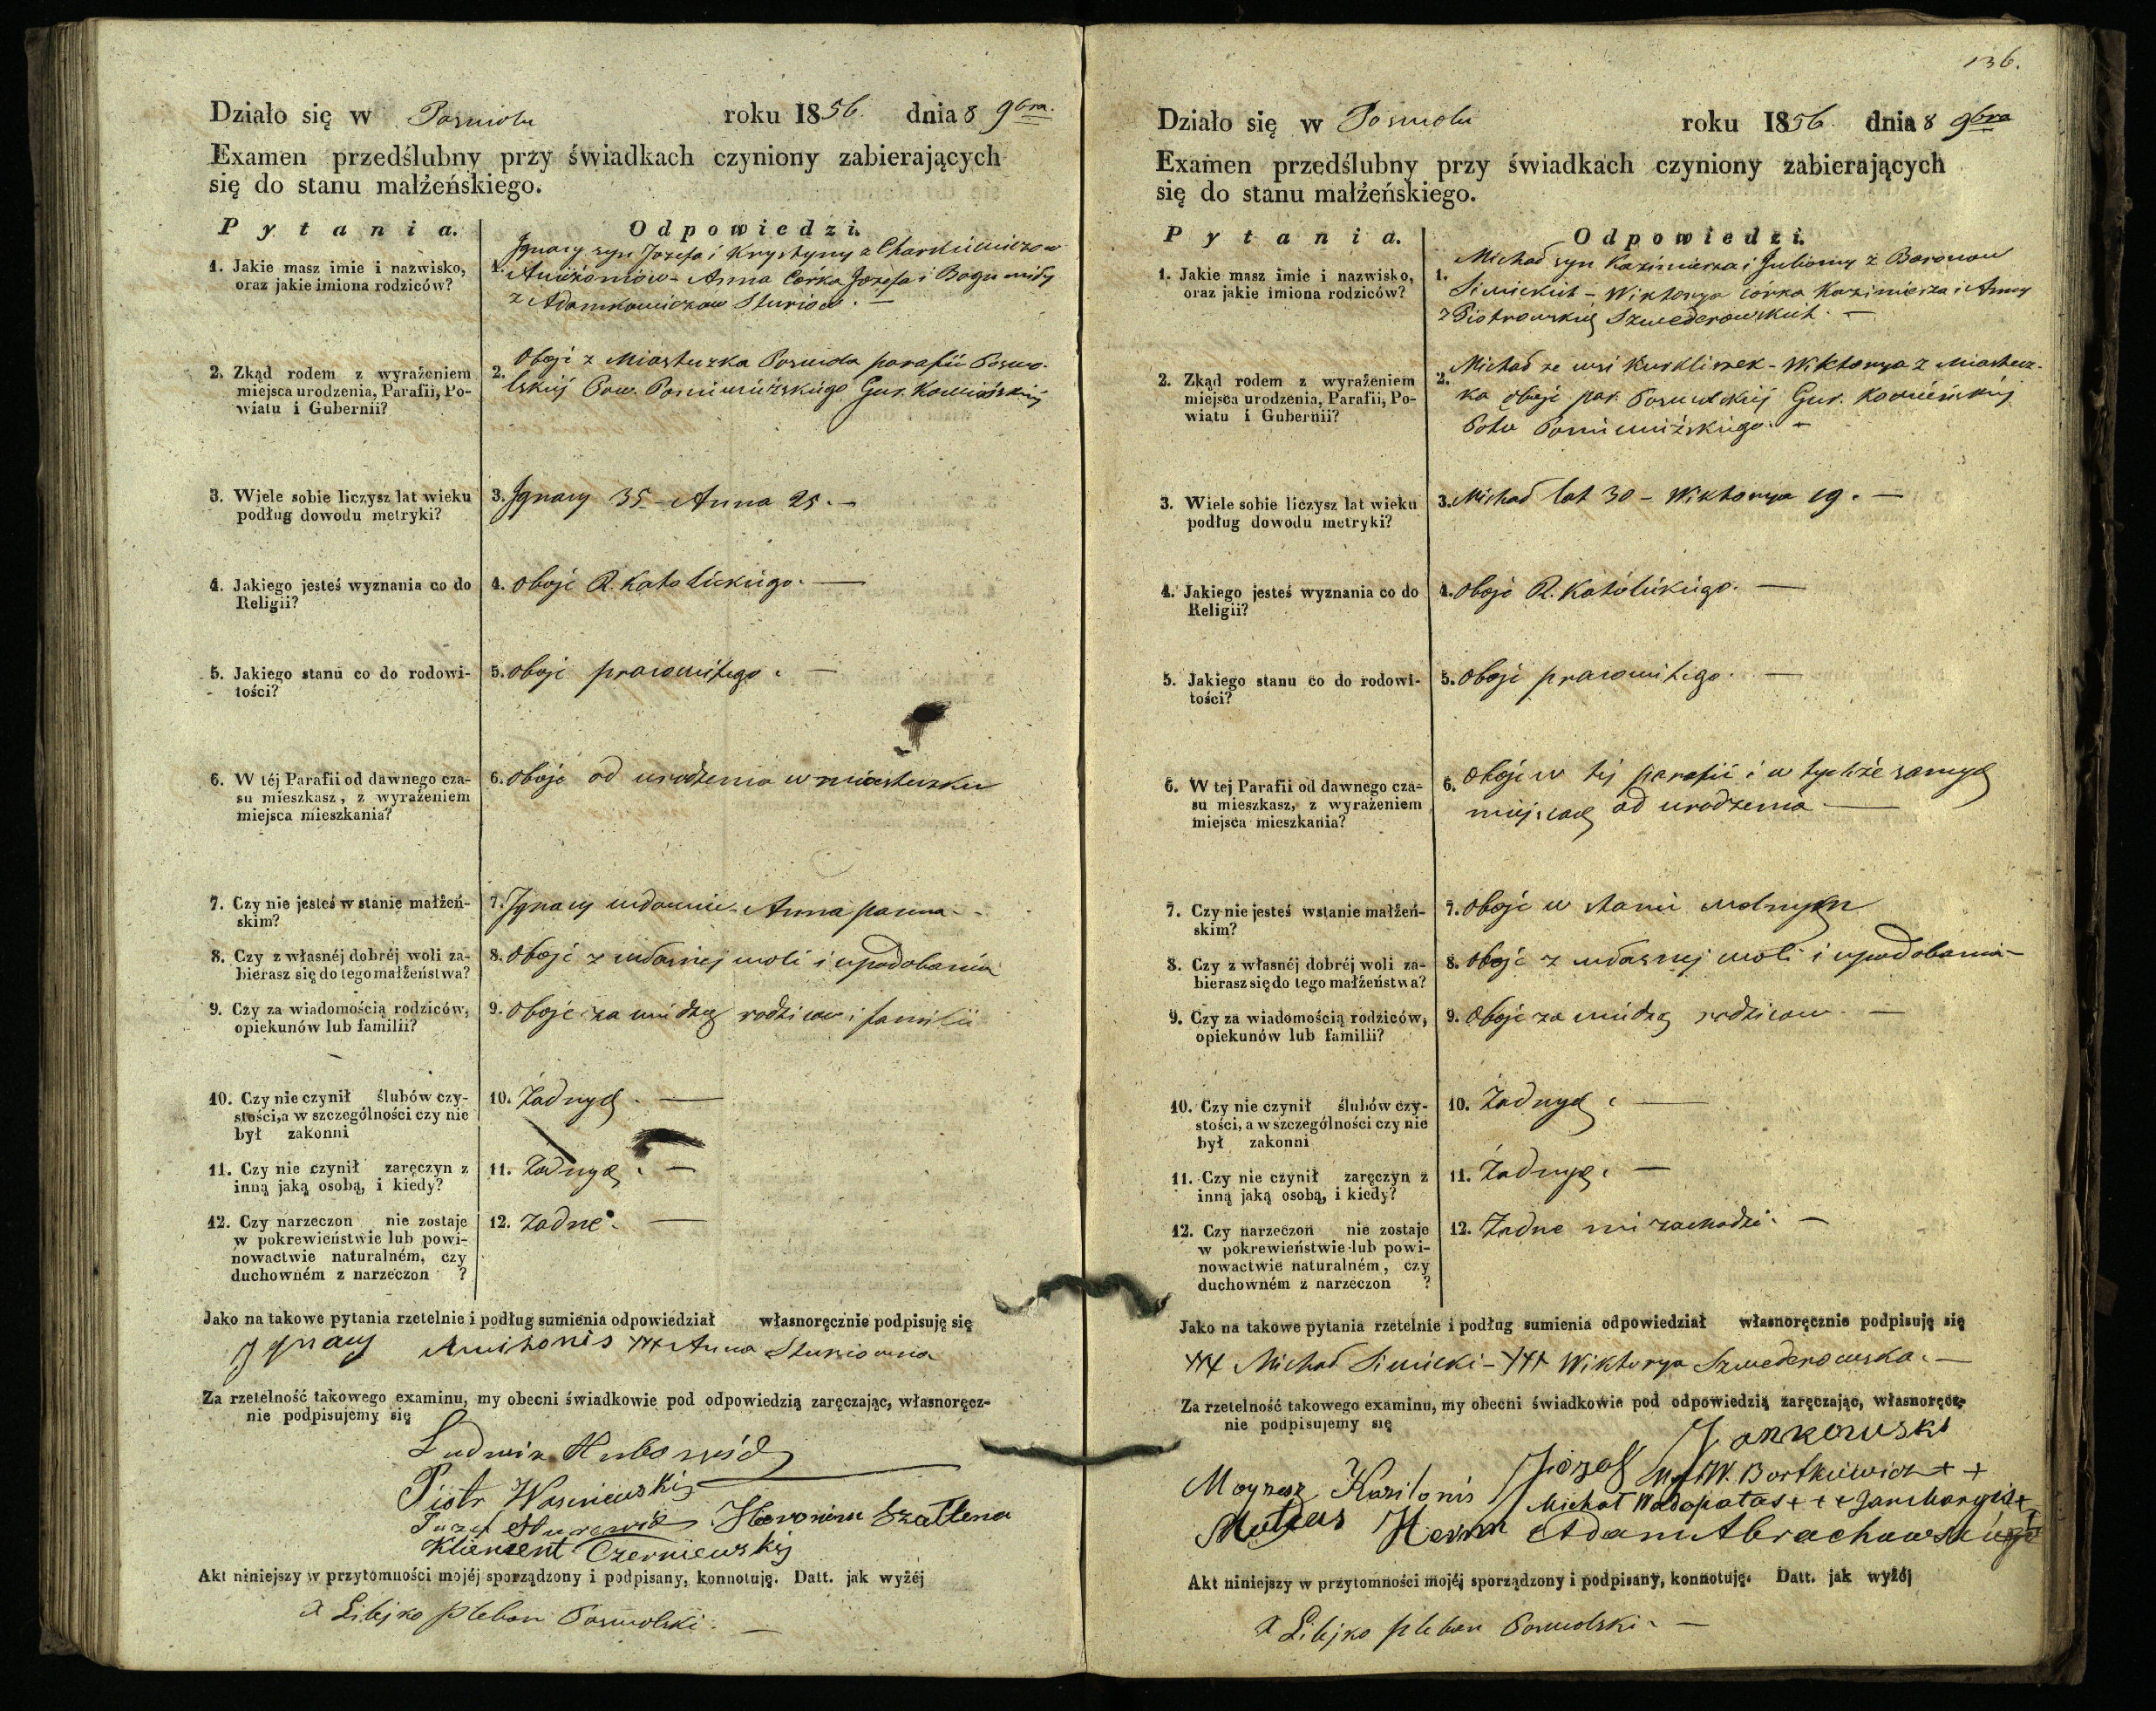 Działo się w Poswolu roku 1856. dnia 8 9bra.
Examen przedślubny przy świadkach czyniony zabierających
się do stanu małżeńskiego.
Pytania. Odpowiedzi.
1. Jakie masz imie i nazwisko,
oraz jakie imiona rodziców?
1. Ignacy syn Jozefa i Krystyny z
Anna Corka Jozefa i Bogumiły
z Adamkowiczow
2. Zkąd rodem z wyrażeniem
miejsca urodzenia, Parafii, Po-
wiatu i Gubernii?
2. Oboje z Miasteczka Poswola parafii Poswo-
lskiej Pow. Poniewiezskiego Gub. Kowieńskiej
3. Wiele sobie liczysz lat wieku
podług dowodu metryki?
3. Ignacy 35 – Anna 25. –
4. Jakiego jesteś wyznania co do
Religii?
4. Oboje R. Katolickiego. —
5. Jakiego stanu co do rodowi-
tości?
5. Oboje prawowitego. —
6. W téj Parafii od dawnego cza-
su mieszkasz, z wyrażeniem
miejsca mieszkania?
6. Oboje od urodzenia w miasteczku
7. Czy nie jesteś w stanie małżeń-
skim?
7. Ignacy wdowiec – Anna panna –
8. Czy z własnéj dobréj woli za-
bierasz się do tego małżeństwa?
8. Oboje z własnej woli i upodobania
9. Czy za wiadomością rodziców,
opiekunów lub familii?
9. Oboje za wiedzą rodzicow i familii
10. Czy nie czynił ślubów czy-
stości, a w szczególności czy nie
był zakonni
10. Żadnych. —
11. Czy nie czynił zaręczyn z
inną jaką osobą, i kiedy?
11. Żadnych. —
12. Czy narzeczon nie zostaje
w pokrewieństwie lub powi-
nowactwie naturalném, czy
duchowném z narzeczon ?
12. Żadne. —
Jako na takowe pytania rzetelnie i podług sumienia odpowiedział własnoręcznie podpisuję się
Ignacy xxx Anna
Za rzetelność takowego examinu, my obecni świadkowie pod odpowiedzią zaręczając, własnoręcz-
nie podpisujemy się
Ludwik
Piotr Wasniewskij
Klement Czerniewskij
Akt niniejszy w przytomności mojéj sporządzony i podpisany, konnotuję. Datt. jak wyżéj
X Libejko pleban Poswolski. —
136.
Działo się w Poswolu roku 1856. dnia 8 9bra
Examen przedślubny przy świadkach czyniony zabierających
się do stanu małżeńskiego.
Pytania. Odpowiedzi.
1. Jakie masz imie i nazwisko,
oraz jakie imiona rodziców?
1. Michał syn Kazimierza i Julianny z Baronow
Wiktorya córka Kazimierza i Anny
z Piotrowskich Szwederowskich. —
2. Zkąd rodem z wyrażeniem
miejsca urodzenia, Parafii, Po-
wiatu i Gubernii?
2. Michał ze wsi Wiktorya z Miastecz-
ka oboje par. Poswolskiej Gub. Kowieńskiej
Potu Poniewiezskiego. —
3. Wiele sobie liczysz lat wieku
podług dowodu metryki?
3. Michał lat 30 – Wiktorya 19. —
4. Jakiego jesteś wyznania co do
Religii?
4. Oboje R. Katolickiego. —
5. Jakiego stanu co do rodowi-
tości?
5. Oboje prawowitego. —
6. W tej Parafii od dawnego cza-
su mieszkasz, z wyrażeniem
miejsca mieszkania?
6. Oboje w tej parafii i w tychże samych
miejscach od urodzenia —
7. Czy nie jesteś wstanie małżeń-
skim?
7. Oboje w stanie wolnym
8. Czy z własnéj dobréj woli za-
bierasz się do tego małżeństwa?
8. Oboje z własnej woli i upodobania –
9. Czy za wiadomością rodziców,
opiekunów lub familii?
9. Oboje za wiedzą rodzicow. —
10. Czy nie czynił ślubów czy-
stości, a w szczególności czy nie
był zakonni
10. Żadnych. —
11. Czy nie czynił zaręczyn z
inną jaką osobą, i kiedy?
11. Żadnych. —
12. Czy narzeczon nie zostaje
w pokrewieństwie lub powi-
nowactwie naturalném, czy
duchowném z narzeczon ?
12. Żadne nie zachodzi. —
Jako na takowe pytania rzetelnie i podług sumienia odpowiedział własnoręcznie podpisuję się
xxx Michał – xxx Wiktorya Szwederowska. —
Za rzetelność takowego examinu, my obecni świadkowie pod odpowiedzią zaręczając, własnoręcz-
nie podpisujemy się
Józef Jankowski
W. Bortkiewicz + +
Michał Wadopałas + + +
Adam
Akt niniejszy w przytomności mojéj sporządzony i podpisany, konnotuję. Datt. jak wyżéj
X Libejko pleban Poswolski. —